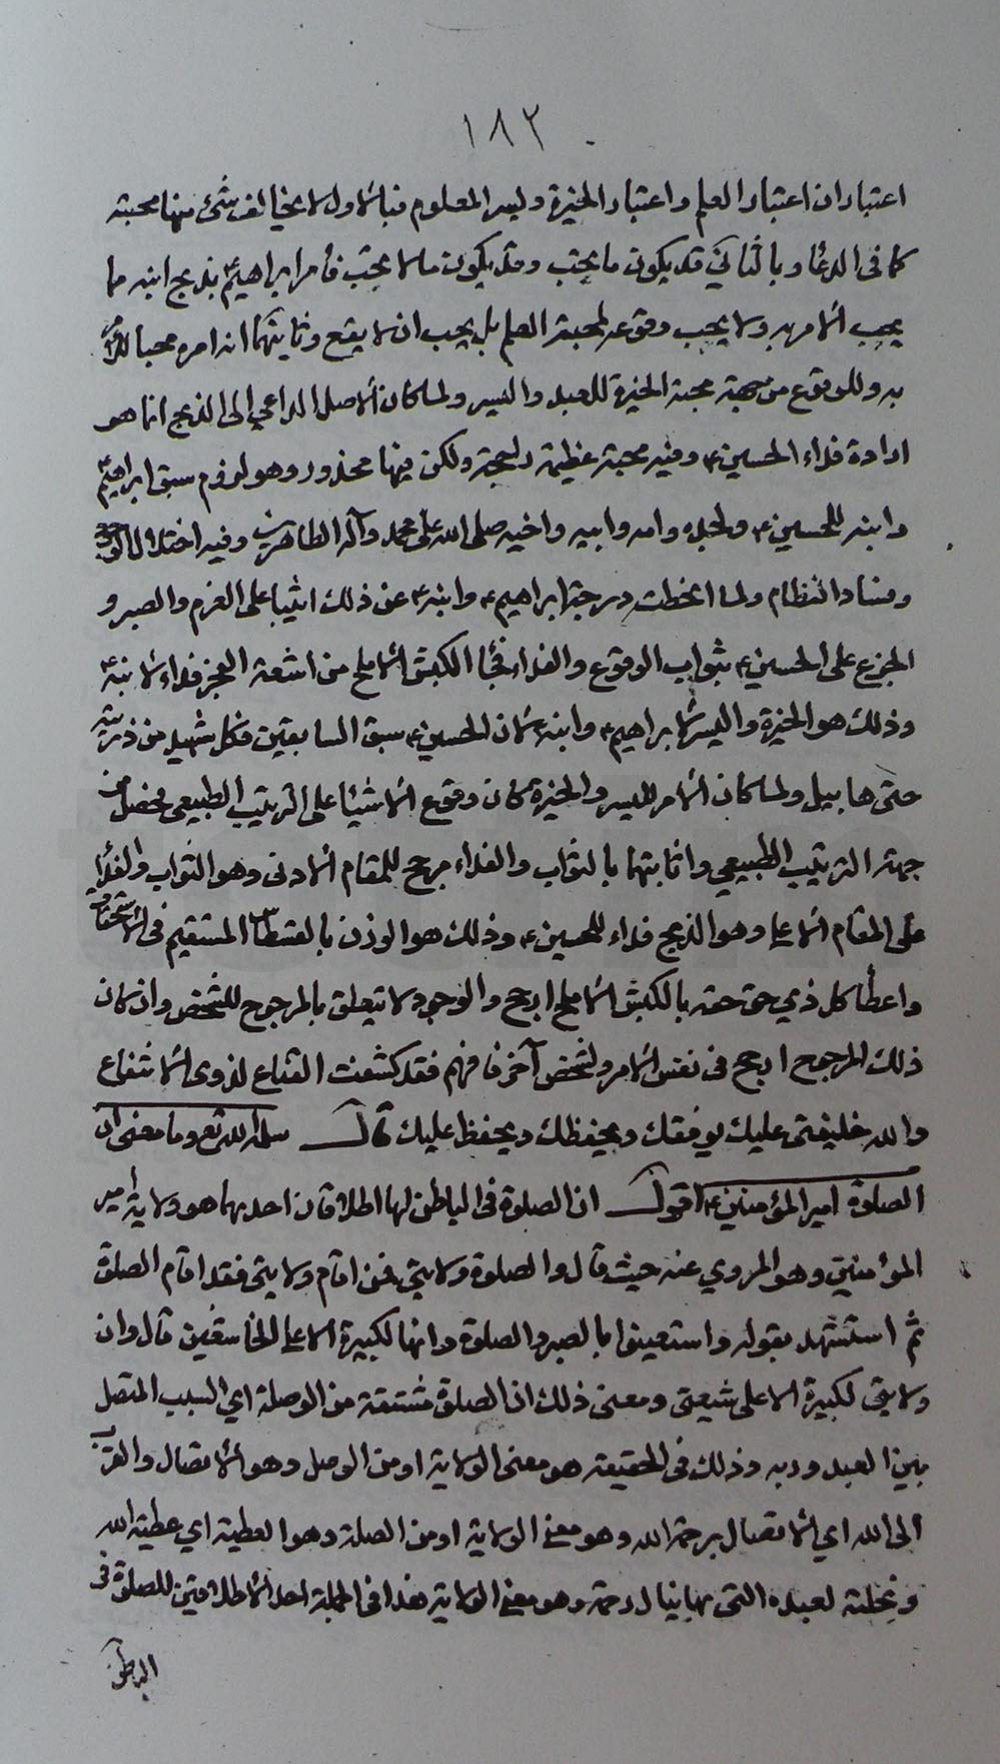 ١٨٢
اعتباران اعتبار العلم واعتبار الخيرة وليس المعلوم فبالاول لا يخالف شئ منها محبته
كما فى الدعا وبالثاني قد يكون ما يحب وقد يكون ما لا يحب فأمر ابراهيم ع بذبح ابنه مما
يحب الامر به ولا يحب وقوعه لمحبة العلم بل يحب ان لا يقع وثانيهما انه امره محبا للامر
به وللوقوع من جهة محبة الخيرة للعبد واليسر ولما كان الاصل الداعي الى الذبح انما هو
ارادة فداء الحسين ع وفيه محبة عظيمة ولكن فيها محذور وهو لزوم سبق ابراهيم ع
وابنه للحسين ع ولجده وامه وابيه واخيه صلى الله على محمد وآله الطاهرين وفيه اختلال الوجود
وفساد النظام ولما انحطت درجة ابراهيم ع وابنه ع عن ذلك اثيبا على العزم والصبر و
الجزع على الحسين ع بثواب الوقوع والفداء فجا الكبش الاملح من اشعة العجز فداء لابنه ع
وذلك هو الخيرة واليسر لابراهيم ع وابنه ع لان الحسين ع سبق السابقين فكل شهيد من ذريته
حتى هابيل ولما كان الامر لليسر والخيرة كان وقوع الاشيا على الترتيب الطبيعي فحصل من
جهة الترتيب الطبيعي واثابتهما بالثواب والفداء مرجح للمقام الادنى وهو الثواب والفداء
على المقام الاعلى وهو الذبح فداء للحسين ع وذلك هو الوزن بالقسطاس المستقيم فى الاستحقاق
واعطأ كل ذي حق حقه بالكبش الاملح ارجح والوجود لا تيعلق بالمرجوح للشخص وان كان
ذلك المرجوح ارجح فى نفس الامر ولشخص آخر فافهم فقد كشفت القناع لذوى الانتفاع
والله خليفتى عليك يوفقك ويحفظك ويحفظ عليك قال سلمه الله تع وما معنى ان
الصلوة امير المؤمنين ع اقول ان الصلوة فى الباطن لها اطلاقان احدهما هو ولاية امير
المؤمنين وهو المروي عنه حيث قال والصلوة ولايتى فمن اقام ولايتى فقد اقام الصلوة
ثم استشهد بقوله واستعينوا بالصبر والصلوة وانها لكبيرة الا على الخاشعين قال وان
ولايتى لكبيرة الا على شيعتى ومعنى ذلك ان الصلوة مشتقة من الوصلة اي السبب المتصل
بين العبد وربه وذلك فى الحقيقة هو معنى الولاية او من الوصل وهو الاتصال والقرب
الى الله اي الاتصال برحمة الله وهو معنى الولاية او من الصلة وهو العطية اي عطية الله
ونحلته لعبده التى بها ينال رحمته وهو معنى الولاية هذا فى الجملة احد الاطلاقين للصلوة فى
الباطن